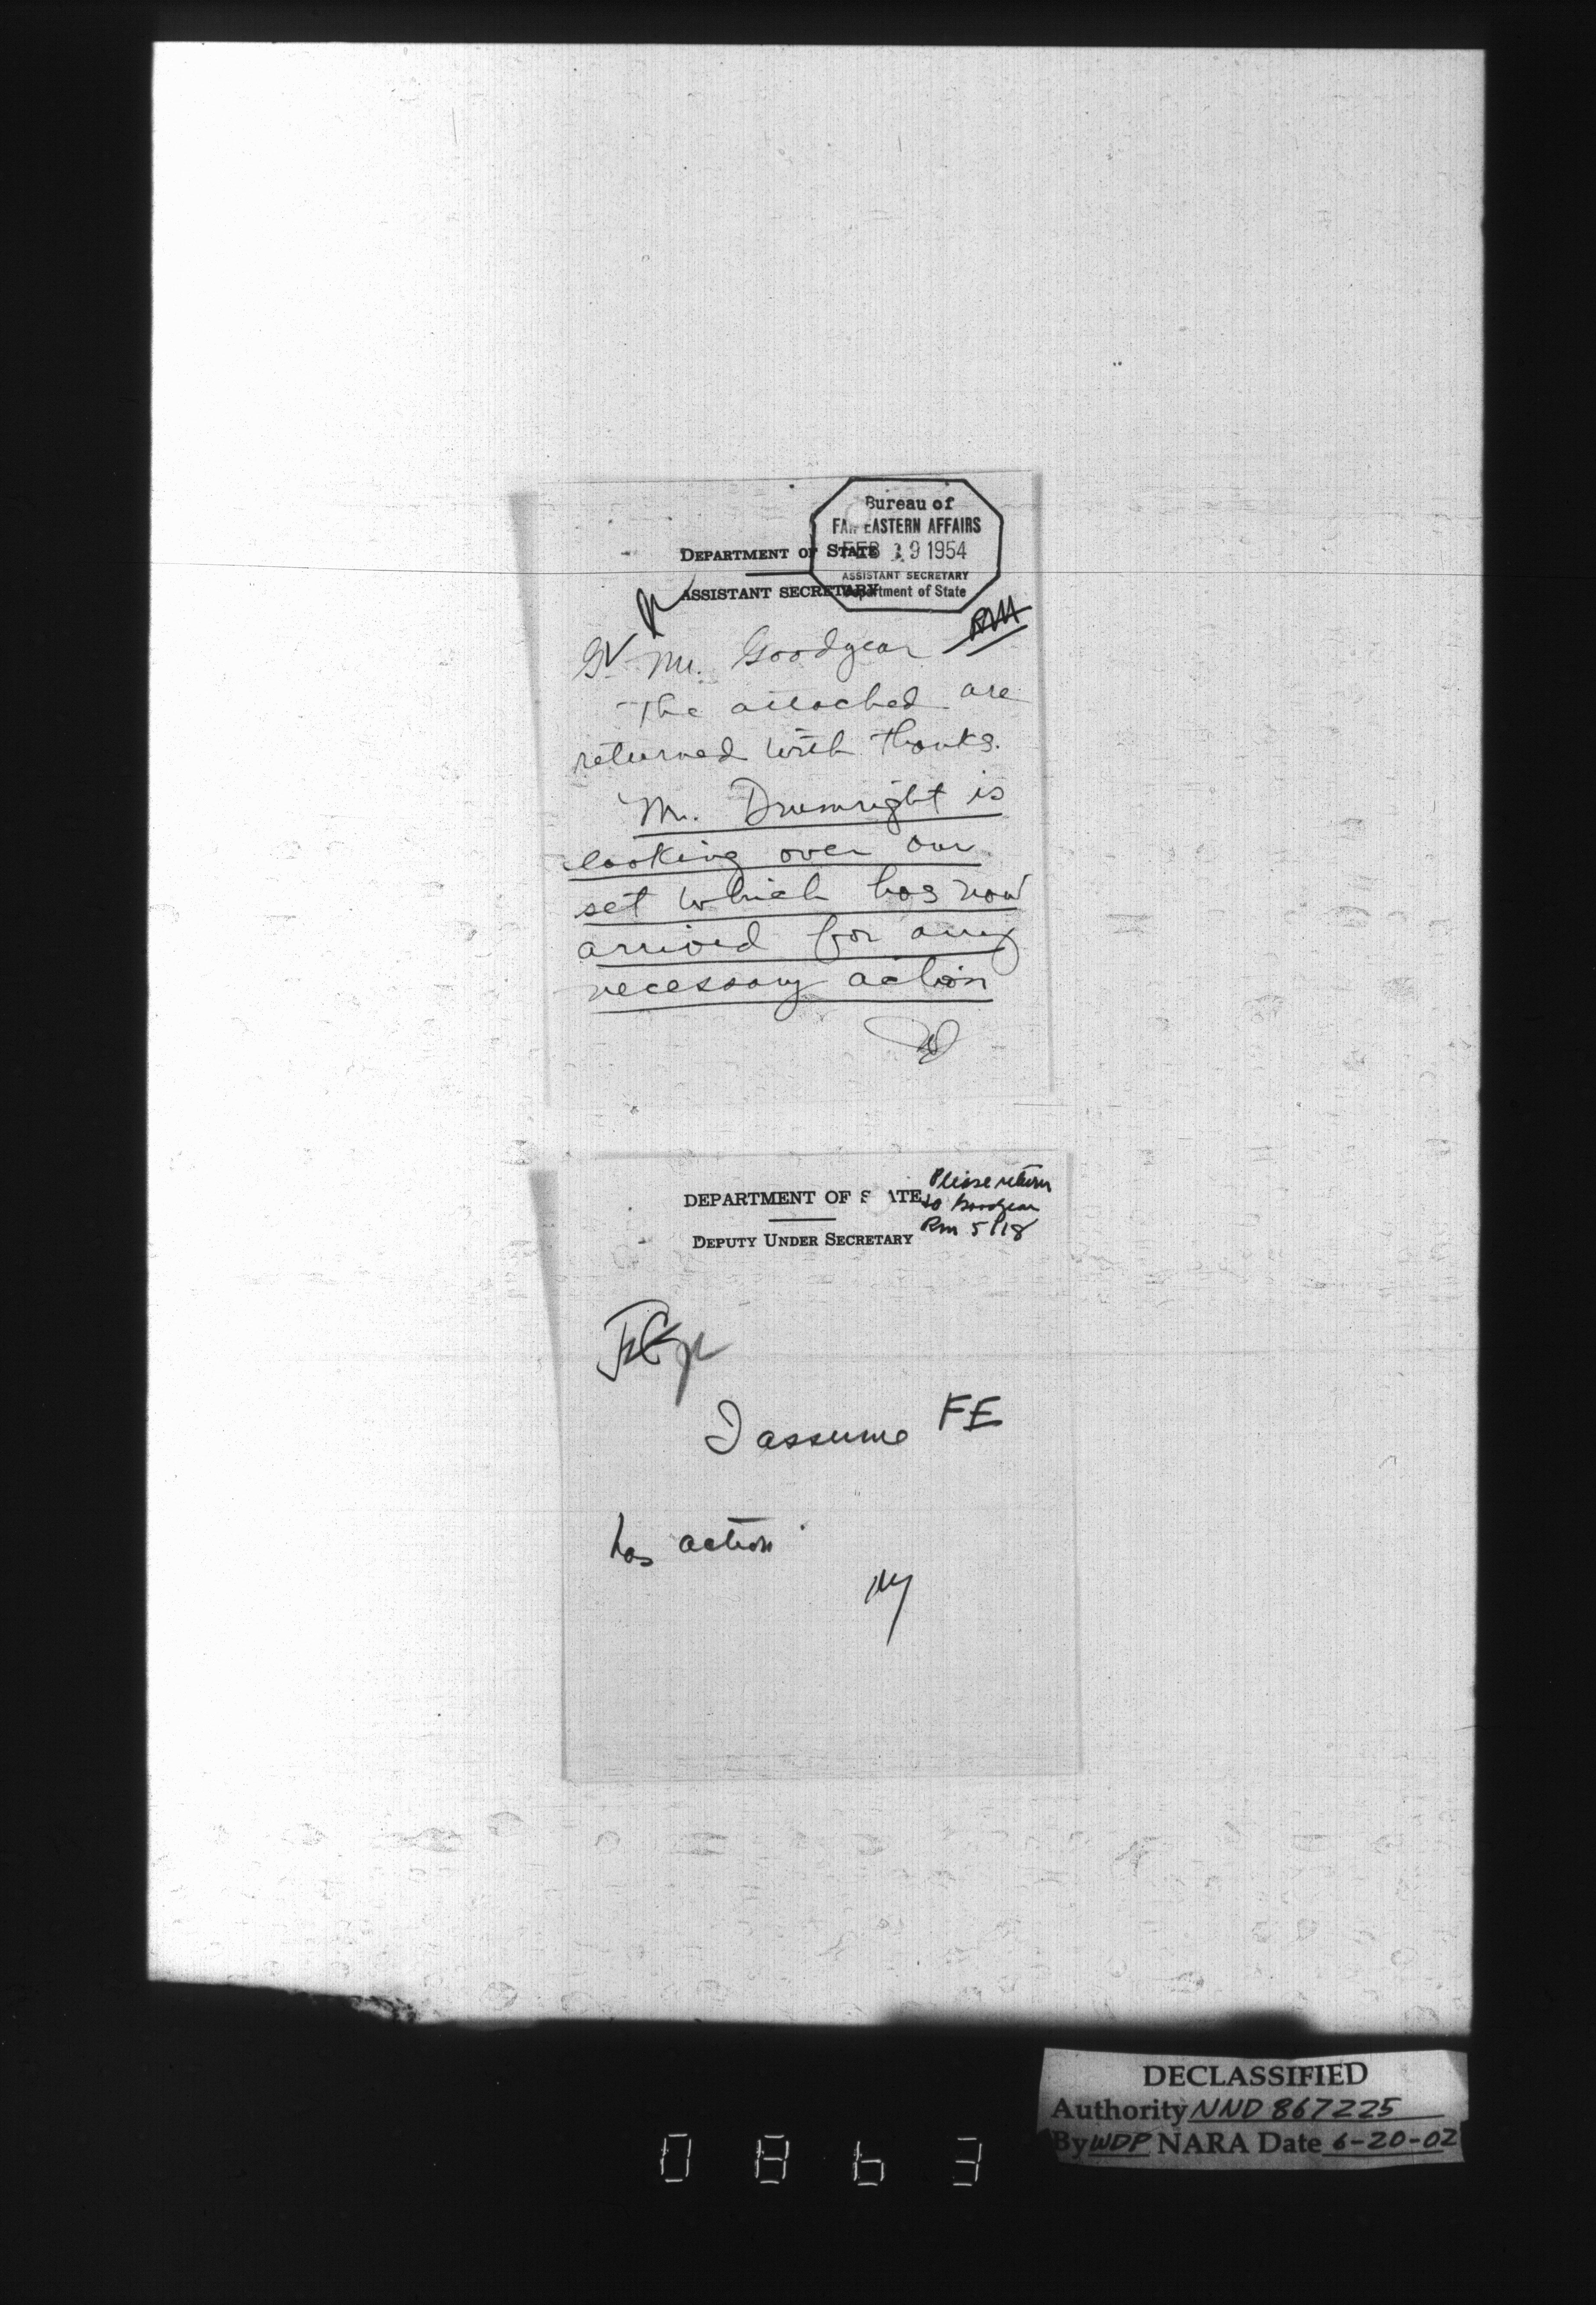 Bureau of
FAR EASTERN AFFAIRS
FEB 19 1954
ASSISTANT SECRETARY
Department of State
DEPARTMENT OF STATE
ASSISTANT SECRETARY
Mr. Goodyear
The attached are
returned with thanks.
Mr. Drumright is
looking over our
set which has now
arrived for any
necessary action
DEPARTMENT OF STATE
DEPUTY UNDER SECRETARY
Please return
to Goodyear
Rm 5118
I assume FE
has action
M
DECLASSIFIED
Authority NND 867225
By WDP NARA Date 6-20-02
0863